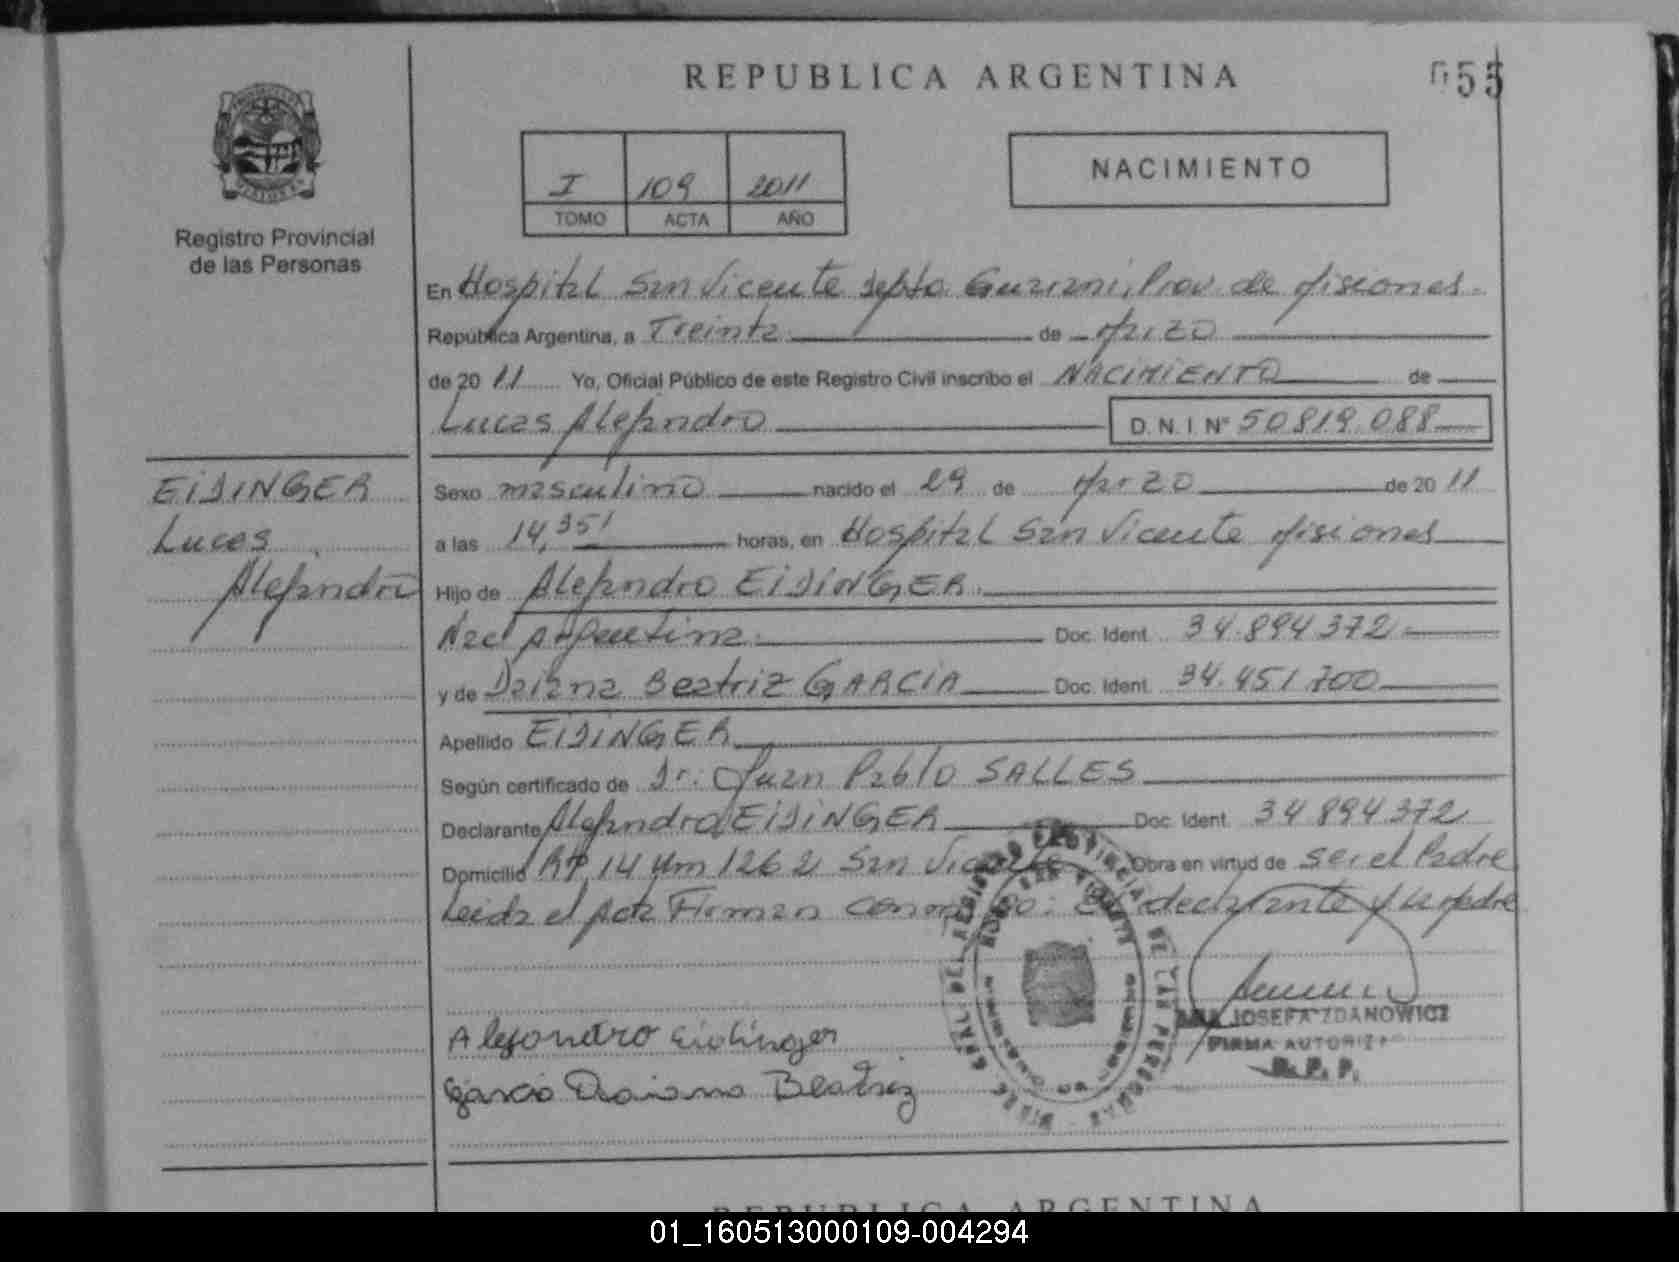 REPUBLICA ARGENTINA
055
I 109 2011
TOMO ACTA AÑO
NACIMIENTO
Registro Provincial
de las Personas
En Hospital San Vicente Depto Guarani, Prov. de Misiones
República Argentina, a Treinta de Marzo
de 2011 Yo, Oficial Público de este Registro Civil inscribo el NACIMIENTO de
Lucas Alejandro D. N. I. N° 50.819.088
EIDINGER
Lucas
Alejandro
Sexo masculino nacido el 29 de Marzo de 2011
a las 14,35' horas, en Hospital San Vicente Misiones
Hijo de Alejandro EIDINGER
Nac Argentina Doc. Ident. 34.894.372
y de Daiana Beatriz GARCIA Doc. Ident. 34.451.700
Apellido EIDINGER
Según certificado de Dr: Juan Pablo SALLES
Declarante Alejandro EIDINGER Doc. Ident. 34.894.372
Domicilio RP 14 Km 1262 San Vicente Obra en virtud de ser el Padre
Leida el Acta Firman conmigo: El declarante y la Madre
Alejandro Eidinger
García Daiana Beatriz
JOSEFA ZDANOWICZ
FIRMA AUTORIZ
R. P. P.
REPUBLICA ARGENTINA
01_160513000109-004294